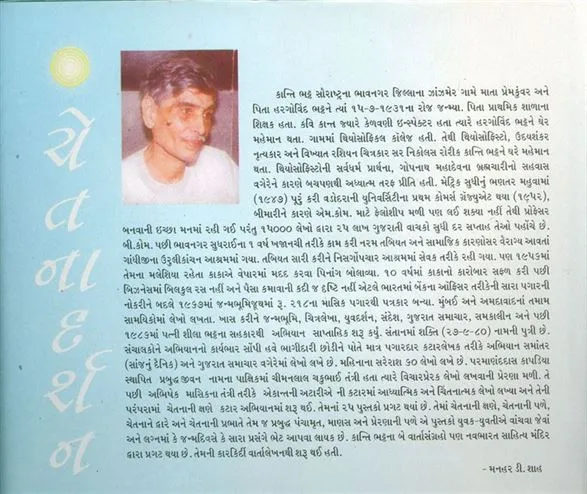 ચેતનાદર્શન
કાન્તિ ભટ્ટ સૌરાષ્ટ્રના ભાવનગર જિલ્લાના ઝાંઝમેર ગામે માતા પ્રેમકુંવર અને
પિતા હરગોવિંદ ભટ્ટને ત્યાં ૧૫-૭-૧૯૩૧ના રોજ જન્મ્યા. પિતા પ્રાથમિક શાળાના
શિક્ષક હતા. કવિ કાન્ત જ્યારે કેળવણી ઇન્સ્પેક્ટર હતા ત્યારે હરગોવિંદ ભટ્ટને ઘેર
મહેમાન થતા. ગામમાં થિયોસોફિકલ કૉલેજ હતી. તેથી થિયોસોફિસ્ટો, ઉદયશંકર
નૃત્યકાર અને વિખ્યાત રશિયન ચિત્રકાર સર નિકોલસ રોરીક કાન્તિ ભટ્ટને ઘરે મહેમાન
થતા. થિયોસોફિસ્ટોની સર્વધર્મ પ્રાર્થના, ગોપનાથ મહાદેવના બ્રહ્મચારીનો સહવાસ
વગેરેને કારણે બચપણથી અધ્યાત્મ તરફ પ્રીતિ હતી. મેટ્રિક સુધીનું ભણતર મહુવામાં
(૧૯૪૭) પૂરું કરી વડોદરાની યુનિવર્સિટીના પ્રથમ કોમર્સ ગ્રૅજ્યુએટ થયા (૧૯૫૨),
બીમારીને કારણે એમ.કોમ. માટે ફેલોશીપ મળી પણ લઈ શક્યા નહીં તેથી પ્રોફેસર
બનવાની ઇચ્છા મનમાં રહી ગઈ પરંતુ ૧૫૦૦૦ લેખો દ્વારા ૨૫ લાખ ગુજરાતી વાચકો સુધી દર સપ્તાહ તેઓ પહોંચે છે.
બી.કોમ. પછી ભાવનગર સુધરાઈના ૧ વર્ષ ખજાનચી તરીકે કામ કરી નરમ તબિયત અને સામાજિક કારણોસર વૈરાગ્ય આવતાં
ગાંધીજીના ઉરુલીકાંચન આશ્રમમાં ગયા. તબિયત સારી કરીને નિસર્ગોપચાર આશ્રમમાં સેવક તરીકે રહી ગયા. પણ ૧૯૫૬માં
તેમના મલેશિયા રહેતા કાકાએ વેપારમાં મદદ કરવા પિનાંગ બોલાવ્યા. ૧૦ વર્ષમાં કાકાનો કારોબાર સફળ કરી પછી
બિઝનેસમાં બિલકુલ રસ નહીં અને પૈસા કમાવાની કદી જ દૃષ્ટિ નહીં એટલે ભારતમાં બેંકના ઑફિસર તરીકેની સારા પગારની
નોકરીને બદલે ૧૯૬૭માં જન્મભૂમિજૂથમાં રૂ. ૨૧૮ના માસિક પગારથી પત્રકાર બન્યા. મુંબઈ અને અમદાવાદનાં તમામ
સામયિકોમાં લેખો લખતા. ખાસ કરીને જન્મભૂમિ, ચિત્રલેખા, યુવદર્શન, સંદેશ, ગુજરાત સમાચાર, સમકાલીન અને પછી
૧૯૮૬માં પત્ની શીલા ભટ્ટના સહકારથી અભિયાન સાપ્તાહિક શરૂ કર્યું. સંતાનમાં શક્તિ (૨૭-૯-૮૦) નામની પુત્રી છે.
સંચાલકોને અભિયાનનો કાર્યભાર સોંપી હવે ભાગીદારી છોડીને પોતે માત્ર પગારદાર કટારલેખક તરીકે અભિયાન સમાંતર
(સાંજનું દૈનિક) અને ગુજરાત સમાચાર વગેરેમાં લેખો લખે છે. મહિનાના સરેરાશ ૬૦ લેખો લખે છે. પરમાણંદદાસ કાપડિયા
સ્થાપિત પ્રબુદ્ધજીવન નામના પાક્ષિકમાં ચીમનલાલ ચકુભાઈ તંત્રી હતા ત્યારે વિચારપ્રેરક લેખો લખવાની પ્રેરણા મળી. તે
પછી અભિષેક માસિકના તંત્રી તરીકે એકાન્તની અટારીએ ની કટારમાં આધ્યાત્મિક અને ચિંતનાત્મક લેખો લખ્યા અને તેની
પરંપરામાં ચેતનાની ક્ષણે કટાર અભિયાનમાં શરૂ થઈ. તેમનાં ૨૫ પુસ્તકો પ્રગટ થયાં છે. તેમાં ચેતનાની ક્ષણે, ચેતનાની પળે,
ચેતનાને દ્વારે અને ચેતનાની પ્રભાતે તેમ જ પ્રબુદ્ધ પંચામૃત, માણસ અને પ્રેરણાની પળે એ પુસ્તકો યુવક-યુવતીએ વાંચવા જેવાં
અને લગ્નમાં કે જન્મદિવસે કે સારા પ્રસંગે ભેટ આપવા લાયક છે. કાન્તિ ભટ્ટના બે વાર્તાસંગ્રહો પણ નવભારત સાહિત્ય મંદિર
દ્વારા પ્રગટ થયા છે. તેમની કારકિર્દી વાર્તાલેખનથી શરૂ થઈ હતી.
- મનહર ડી. શાહ